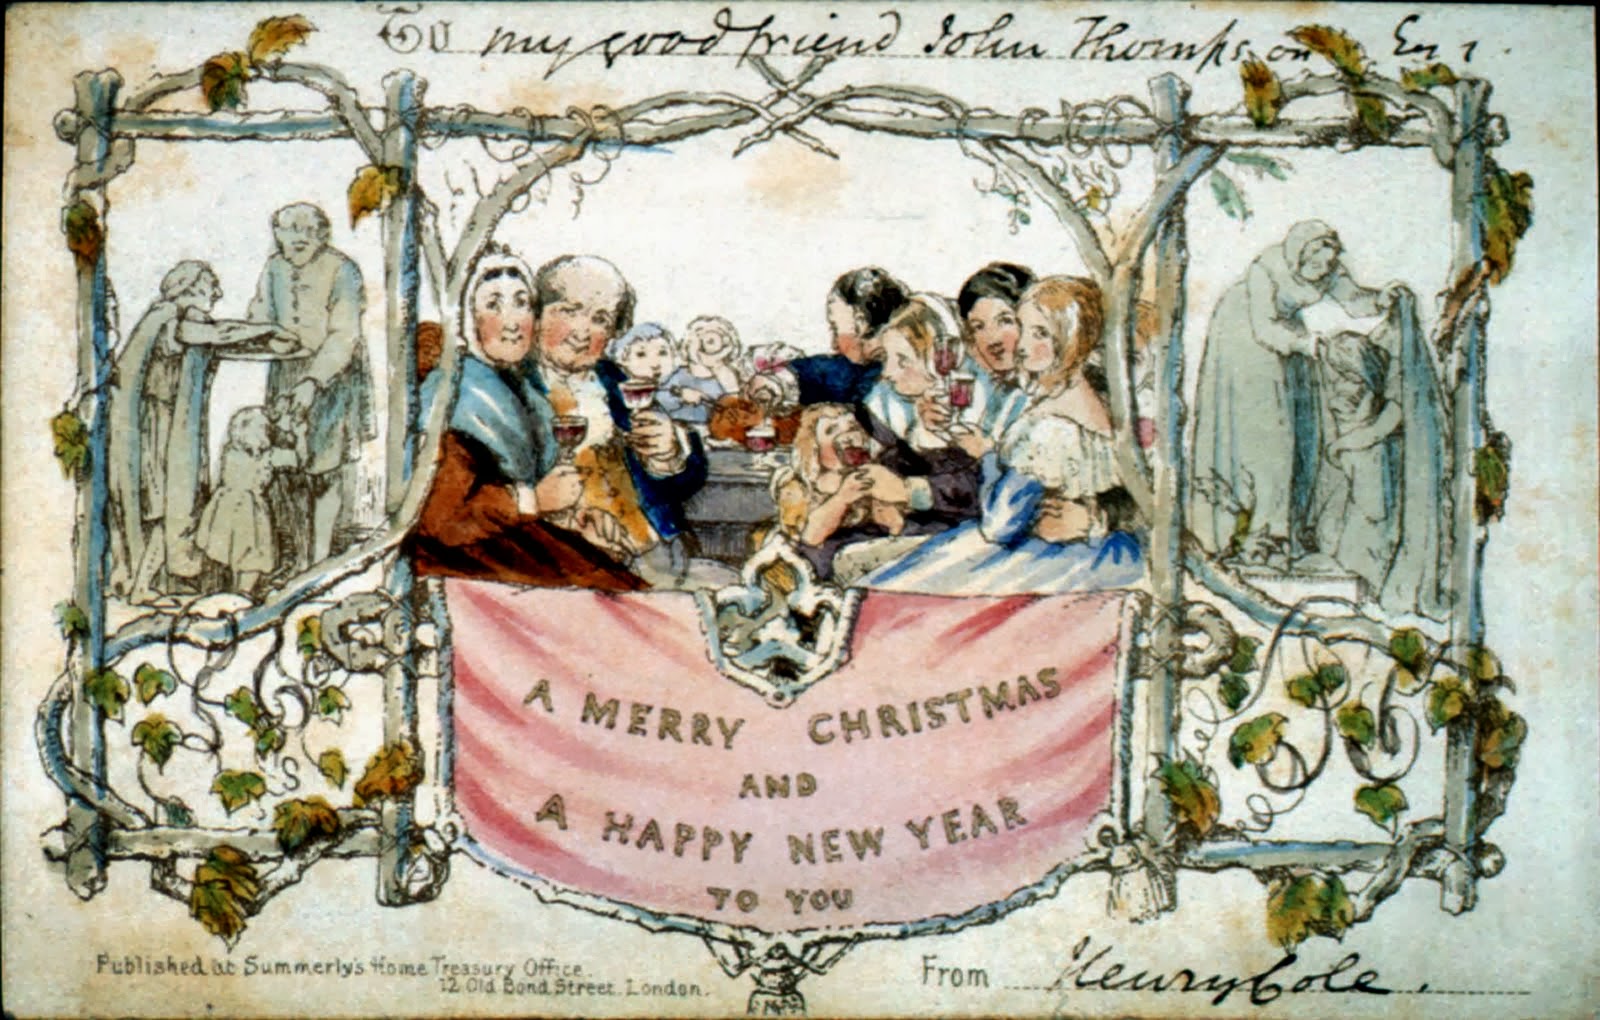 To my good friend John Thompson Esq.
A MERRY CHRISTMAS
AND
A HAPPY NEW YEAR
TO YOU
Published at Summerly's Home Treasury Office.
12 Old Bond Street. London.
From Henry Cole.